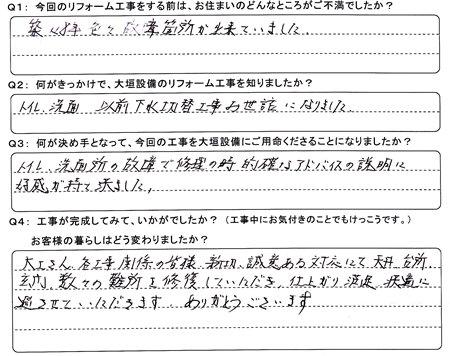 Q1: 今回のリフォーム工事をする前は、お住まいのどんなところがご不満でしたか?
築 年 色々 故障箇所が出来ていました。
Q2: 何がきっかけで、大垣設備のリフォーム工事を知りましたか?
トイレ、洗面 以前下水切替工事お世話になりました
Q3: 何が決め手となって、今回の工事を大垣設備にご用命くださることになりましたか?
トイレ、洗面所の故障で修理の時的確なアドバイスの説明に
好感が持て来ました。
Q4: 工事が完成してみて、いかがでしたか? (工事中にお気付きのことでもけっこうです。)
お客様の暮らしはどう変わりましたか?
大工さん 各工事関係の皆様 親切、誠意ある対応にて 天井 台所
玄関、数々の難所を修復していただき、仕上がり満足 快適に
過させていただきます。ありがとうございます